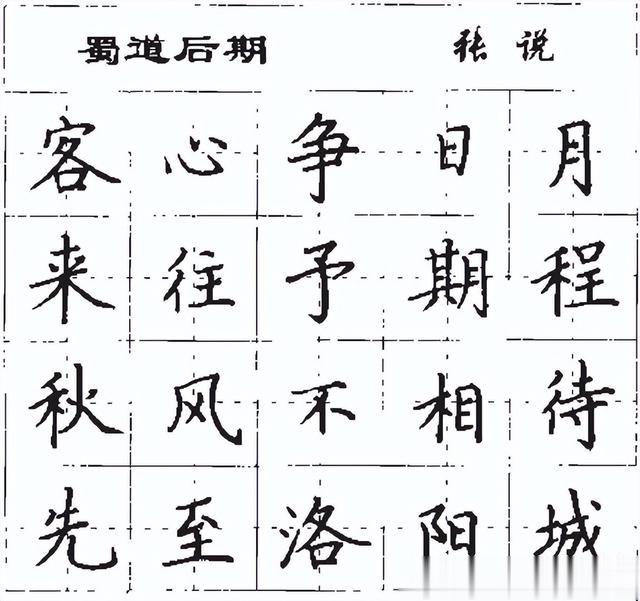 蜀道后期 张说
客心争日月
来往予期程
秋风不相待
先至洛阳城